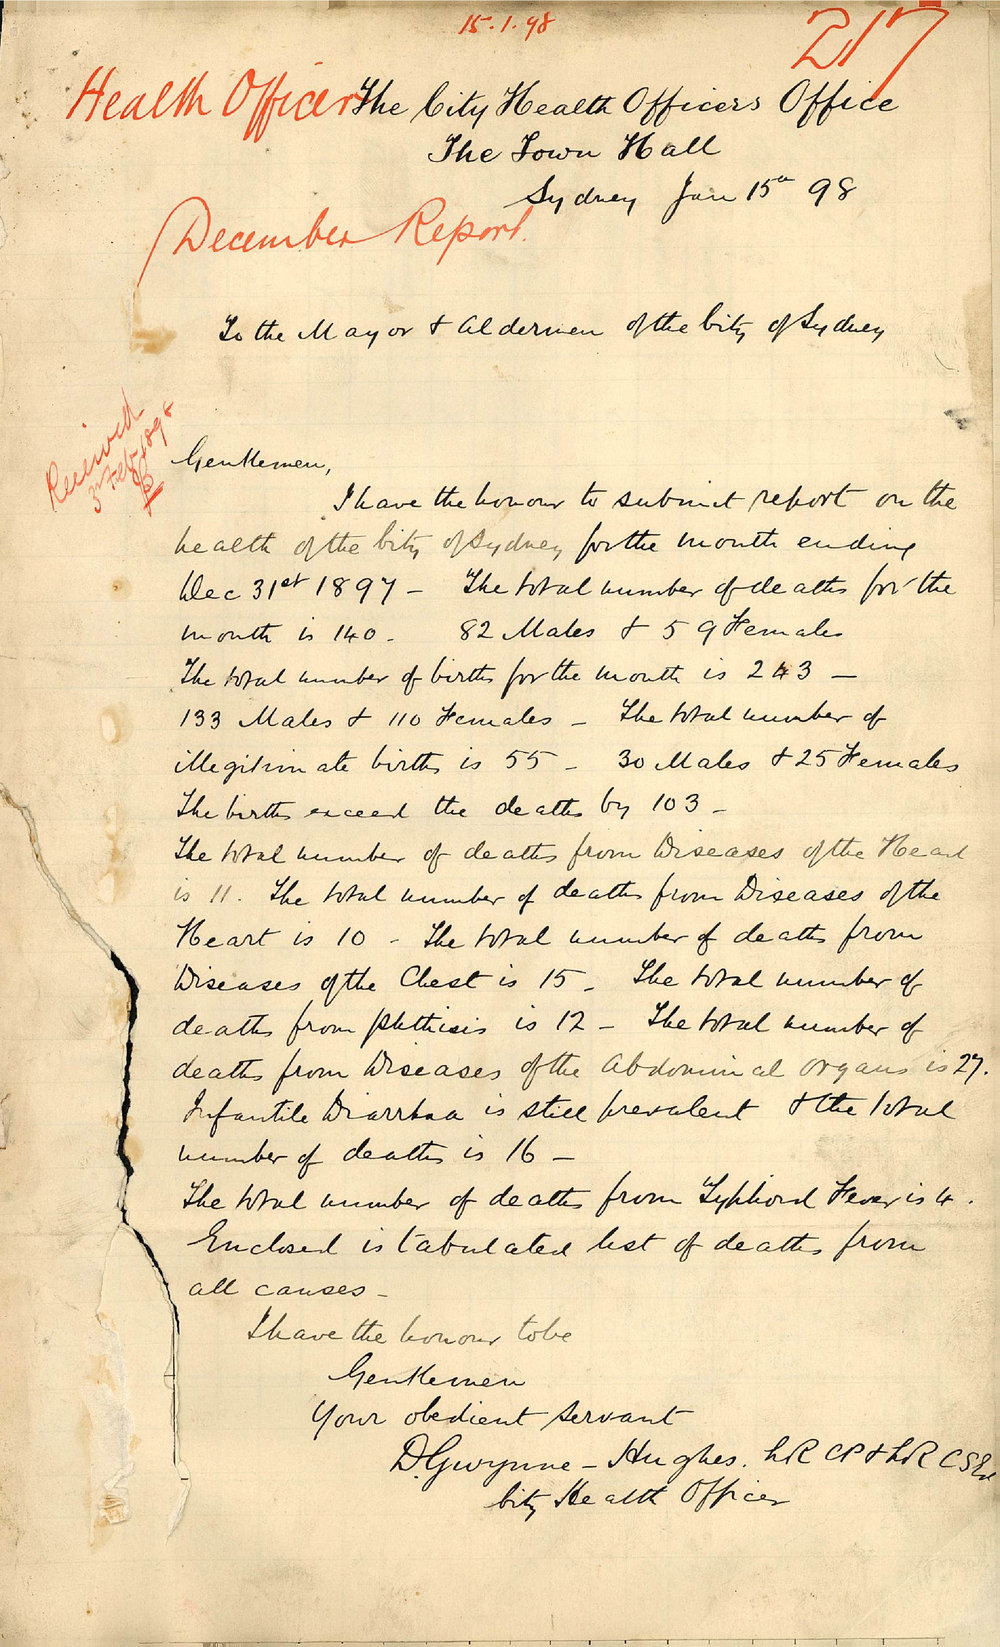 15.1.98
217
Health Officer
The City Health Officers Office
The Town Hall
Sydney Jan 15th 98
December Report.
To the Mayor & Aldermen of the City of Sydney
Received
3rd Feb. 1898
Gentlemen,
I have the honour to submit report on the
health of the City of Sydney for the month ending
Dec 31st 1897 - The total number of deaths for the
month is 140 - 82 Males & 59 Females
The total number of births for the month is 243 -
133 Males & 110 Females - The total number of
illegitimate births is 55 - 30 Males & 25 Females
The births exceed the deaths by 103 -
The total number of deaths from Diseases of the Head
is 11. The total number of deaths from Diseases of the
Heart is 10 - The total number of deaths from
Diseases of the Chest is 15 - The total number of
deaths from Phthisis is 12 - The total number of
deaths from Diseases of the Abdominal organs is 27.
Infantile Diarrhœa is still prevalent & the total
number of deaths is 16 -
The total number of deaths from Typhoid Fever is 4.
Enclosed is tabulated list of deaths from
all causes -
I have the honour to be
Gentlemen
Your obedient servant
D. Gwynne-Hughes. LRCP & LRCSEd
City Health Officer